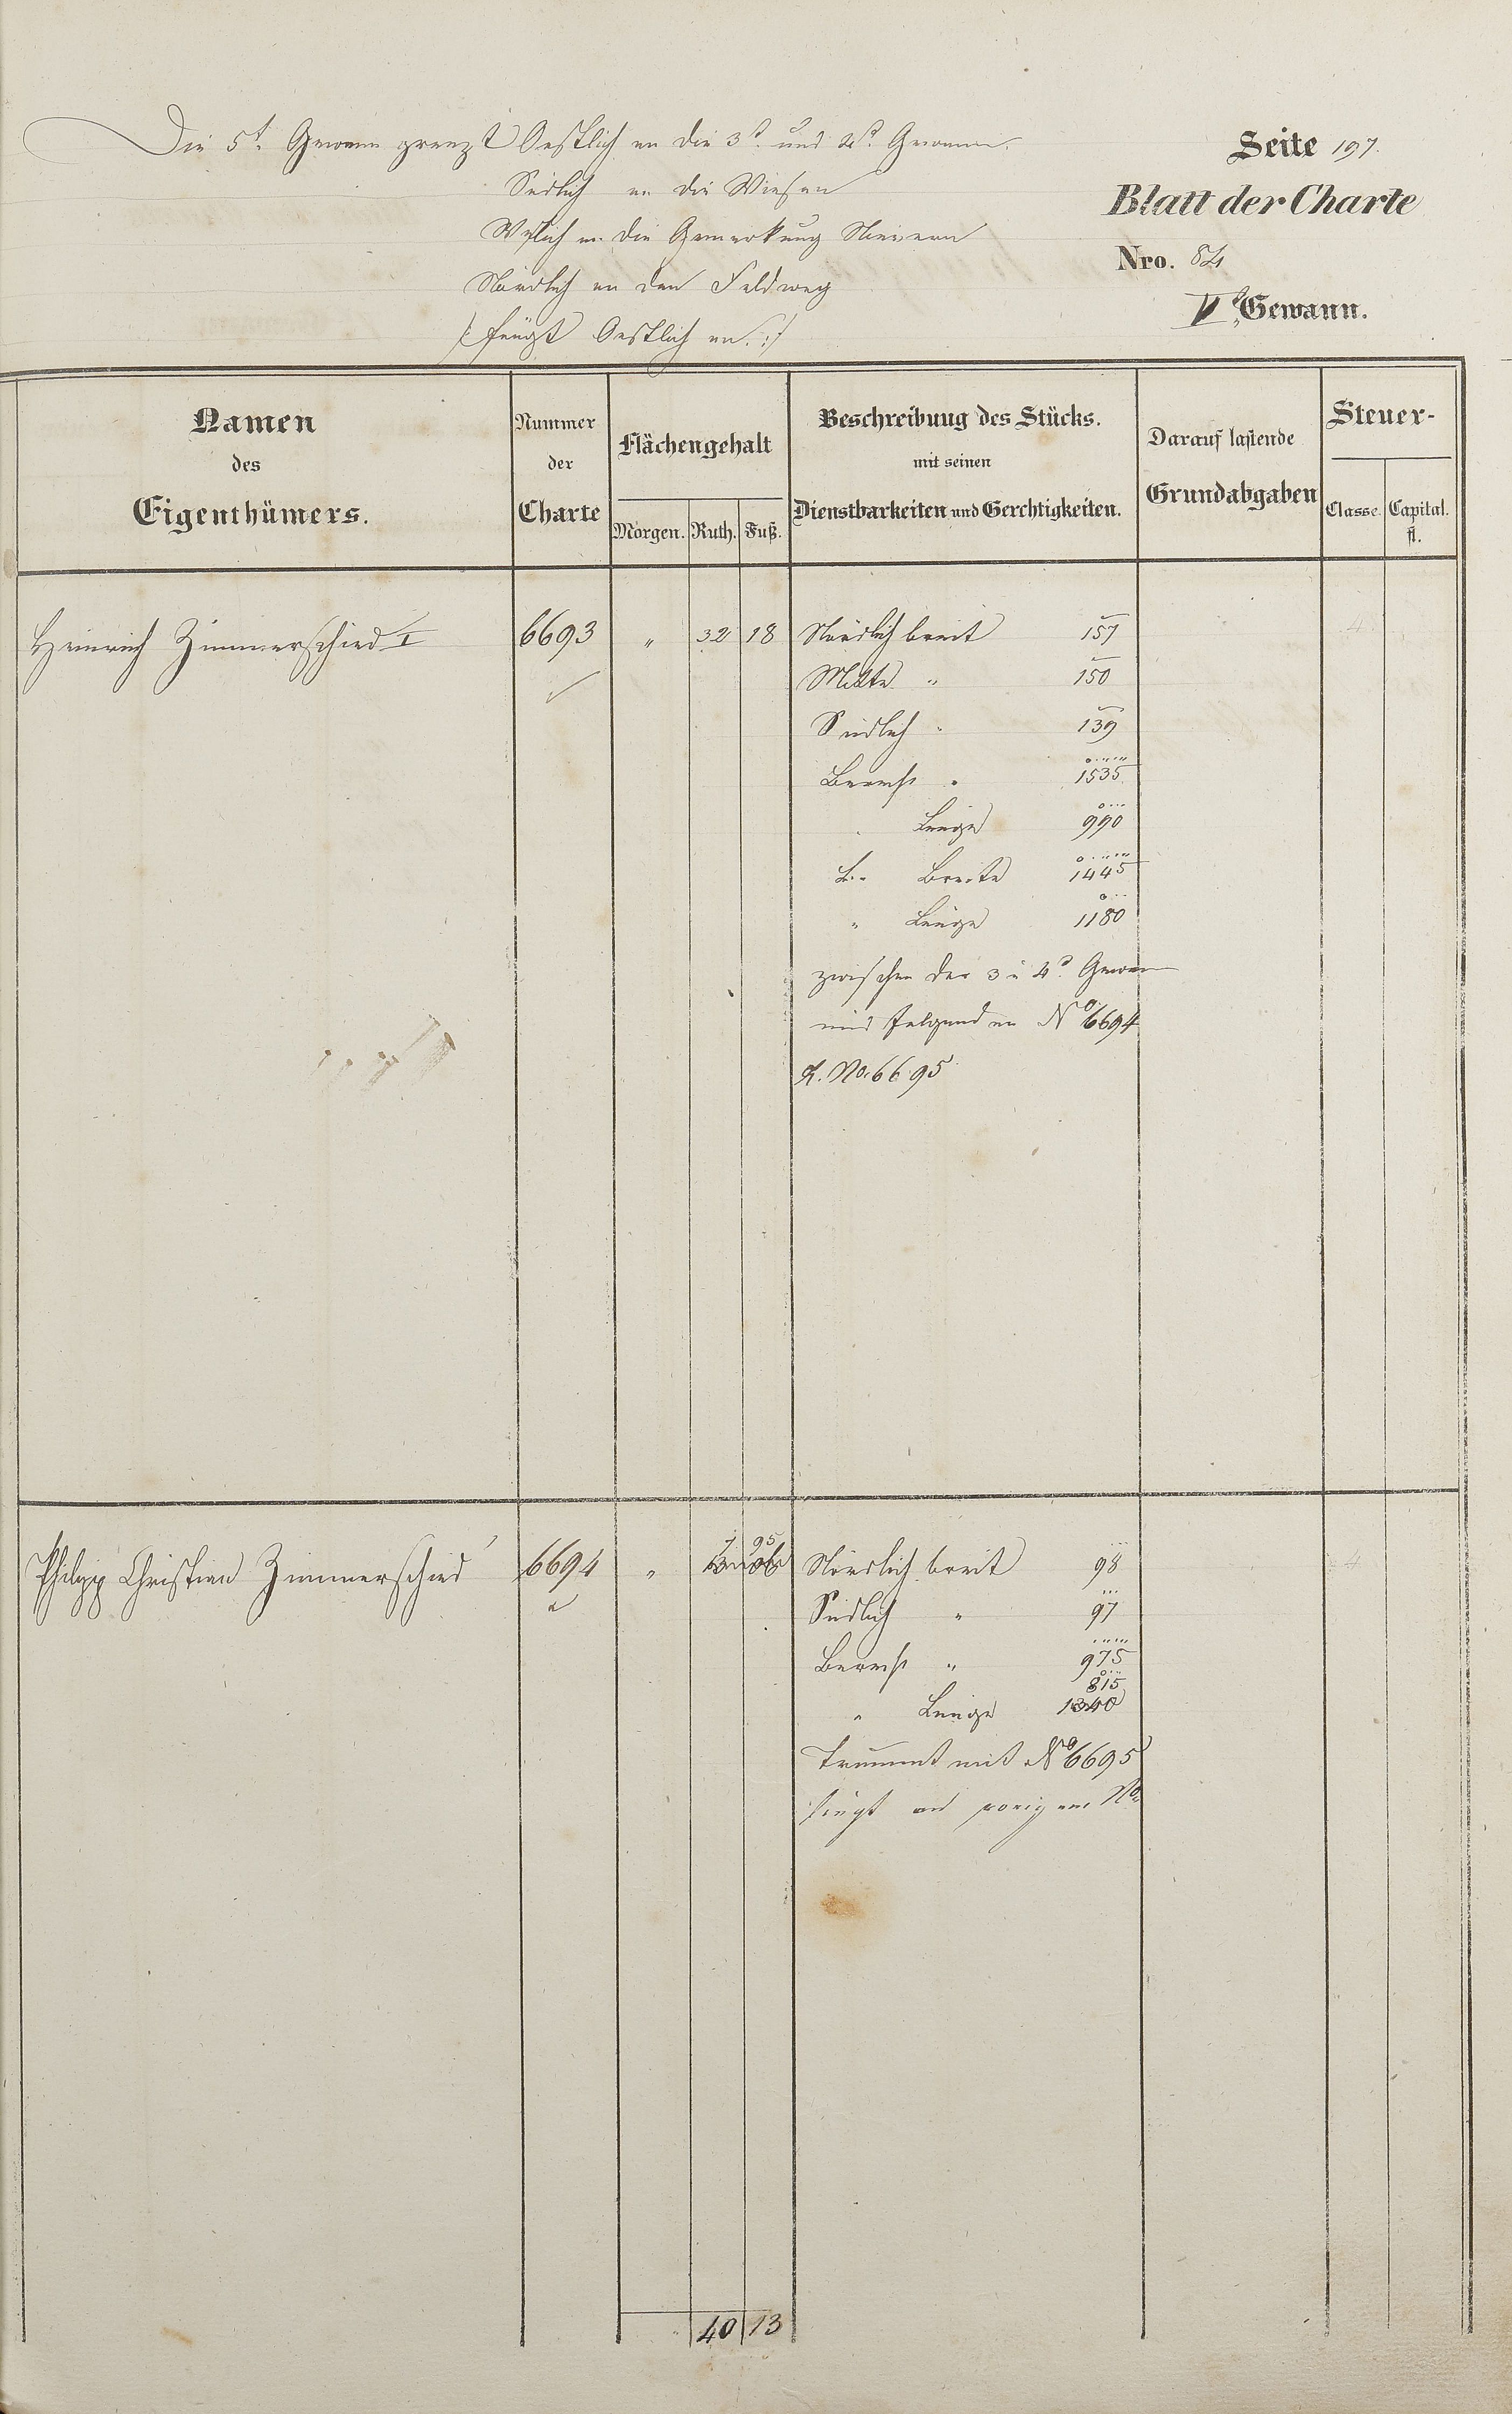 Die 5t. Gewann grenzt Oestlich an die 3t. und 4t. Gewann.
Südlich an die Wiesen
Wstlich an die Gemarkung Nievern
Nördlich an den Feldweg
/: fängt Oestlich an. :/
Seite 197.
Blatt der Charte
Nro. 84
Vte Gewann.
Namen des Eigenthümers.
Nummer der Charte
Flächengehalt
Morgen. Ruth. Fuß.
Beschreibung des Stücks. mit seinen Dienstbarkeiten und Gerechtigkeiten.
Darauf lastende Grundabgaben
Steuer-
Classe. Capital. fl.
Heinrich Zimmerschied I 6693 " 32 18 Nördlich breit 157 4
Mitte " 150
Südlich " 139
Berech. " 1535
Länge 990
Breite 1445
" Länge 1180
zwischen der 3 u 4t. Gewann
und folgenden No 6694
u. No. 6695
Philipp Christian Zimmerschied 6694 " 7 95 Nördlich breit 98 4
Südlich " 97
Berech. " 975
815
" Länge 1340
trümmt mit No 6695
fängt an vorigem No.
40 13